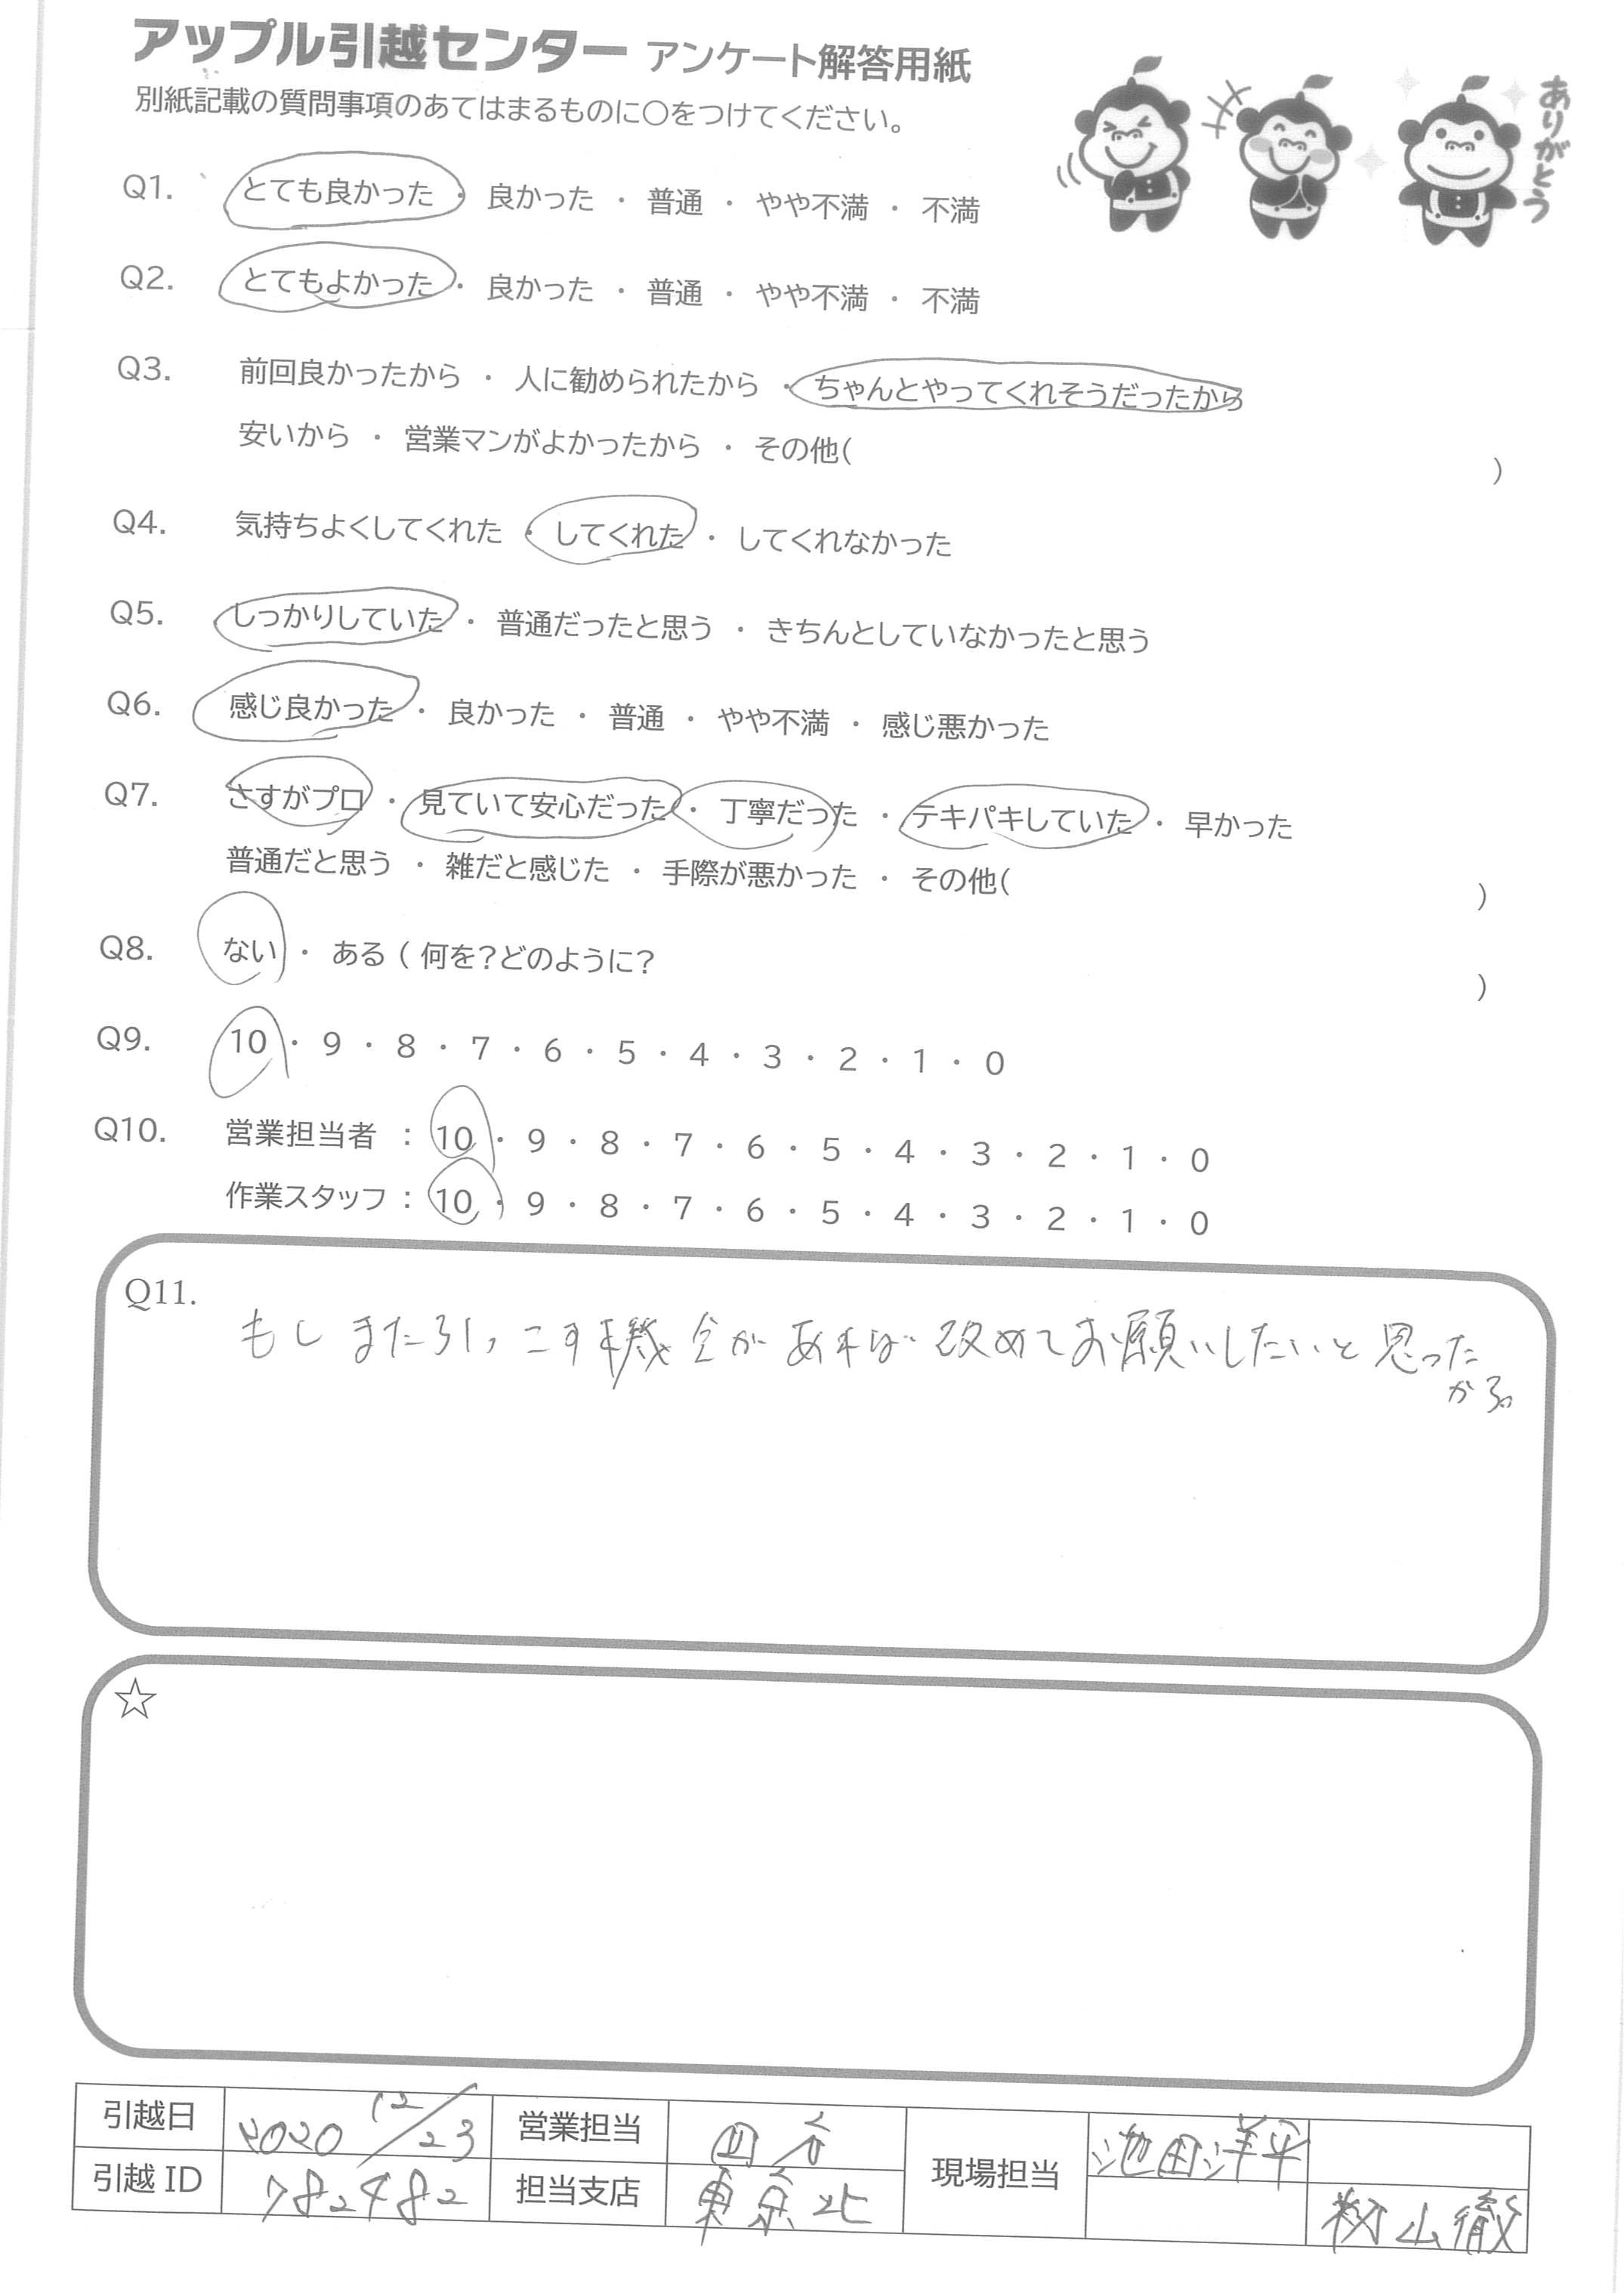 アップル引越センター アンケート解答用紙
別紙記載の質問事項のあてはまるものに〇をつけてください。
ありがとう
Q1. とても良かった ・ 良かった ・ 普通 ・ やや不満 ・ 不満
Q2. とてもよかった ・ 良かった ・ 普通 ・ やや不満 ・ 不満
Q3. 前回良かったから ・ 人に勧められたから ・ ちゃんとやってくれそうだったから
安いから ・ 営業マンがよかったから ・ その他( )
Q4. 気持ちよくしてくれた ・ してくれた ・ してくれなかった
Q5. しっかりしていた ・ 普通だったと思う ・ きちんとしていなかったと思う
Q6. 感じ良かった ・ 良かった ・ 普通 ・ やや不満 ・ 感じ悪かった
Q7. さすがプロ ・ 見ていて安心だった ・ 丁寧だった ・ テキパキしていた ・ 早かった
普通だと思う ・ 雑だと感じた ・ 手際が悪かった ・ その他( )
Q8. ない ・ ある ( 何を?どのように? )
Q9. 10 ・ 9 ・ 8 ・ 7 ・ 6 ・ 5 ・ 4 ・ 3 ・ 2 ・ 1 ・ 0
Q10. 営業担当者 : 10 ・ 9 ・ 8 ・ 7 ・ 6 ・ 5 ・ 4 ・ 3 ・ 2 ・ 1 ・ 0
作業スタッフ : 10 ・ 9 ・ 8 ・ 7 ・ 6 ・ 5 ・ 4 ・ 3 ・ 2 ・ 1 ・ 0
Q11.
もしまた引っこす機会があれば改めてお願いしたいと思った
から。
☆
引越日 2020 12/23 営業担当 四谷 現場担当 池田洋平
引越ID 782482 担当支店 東京北 山徹